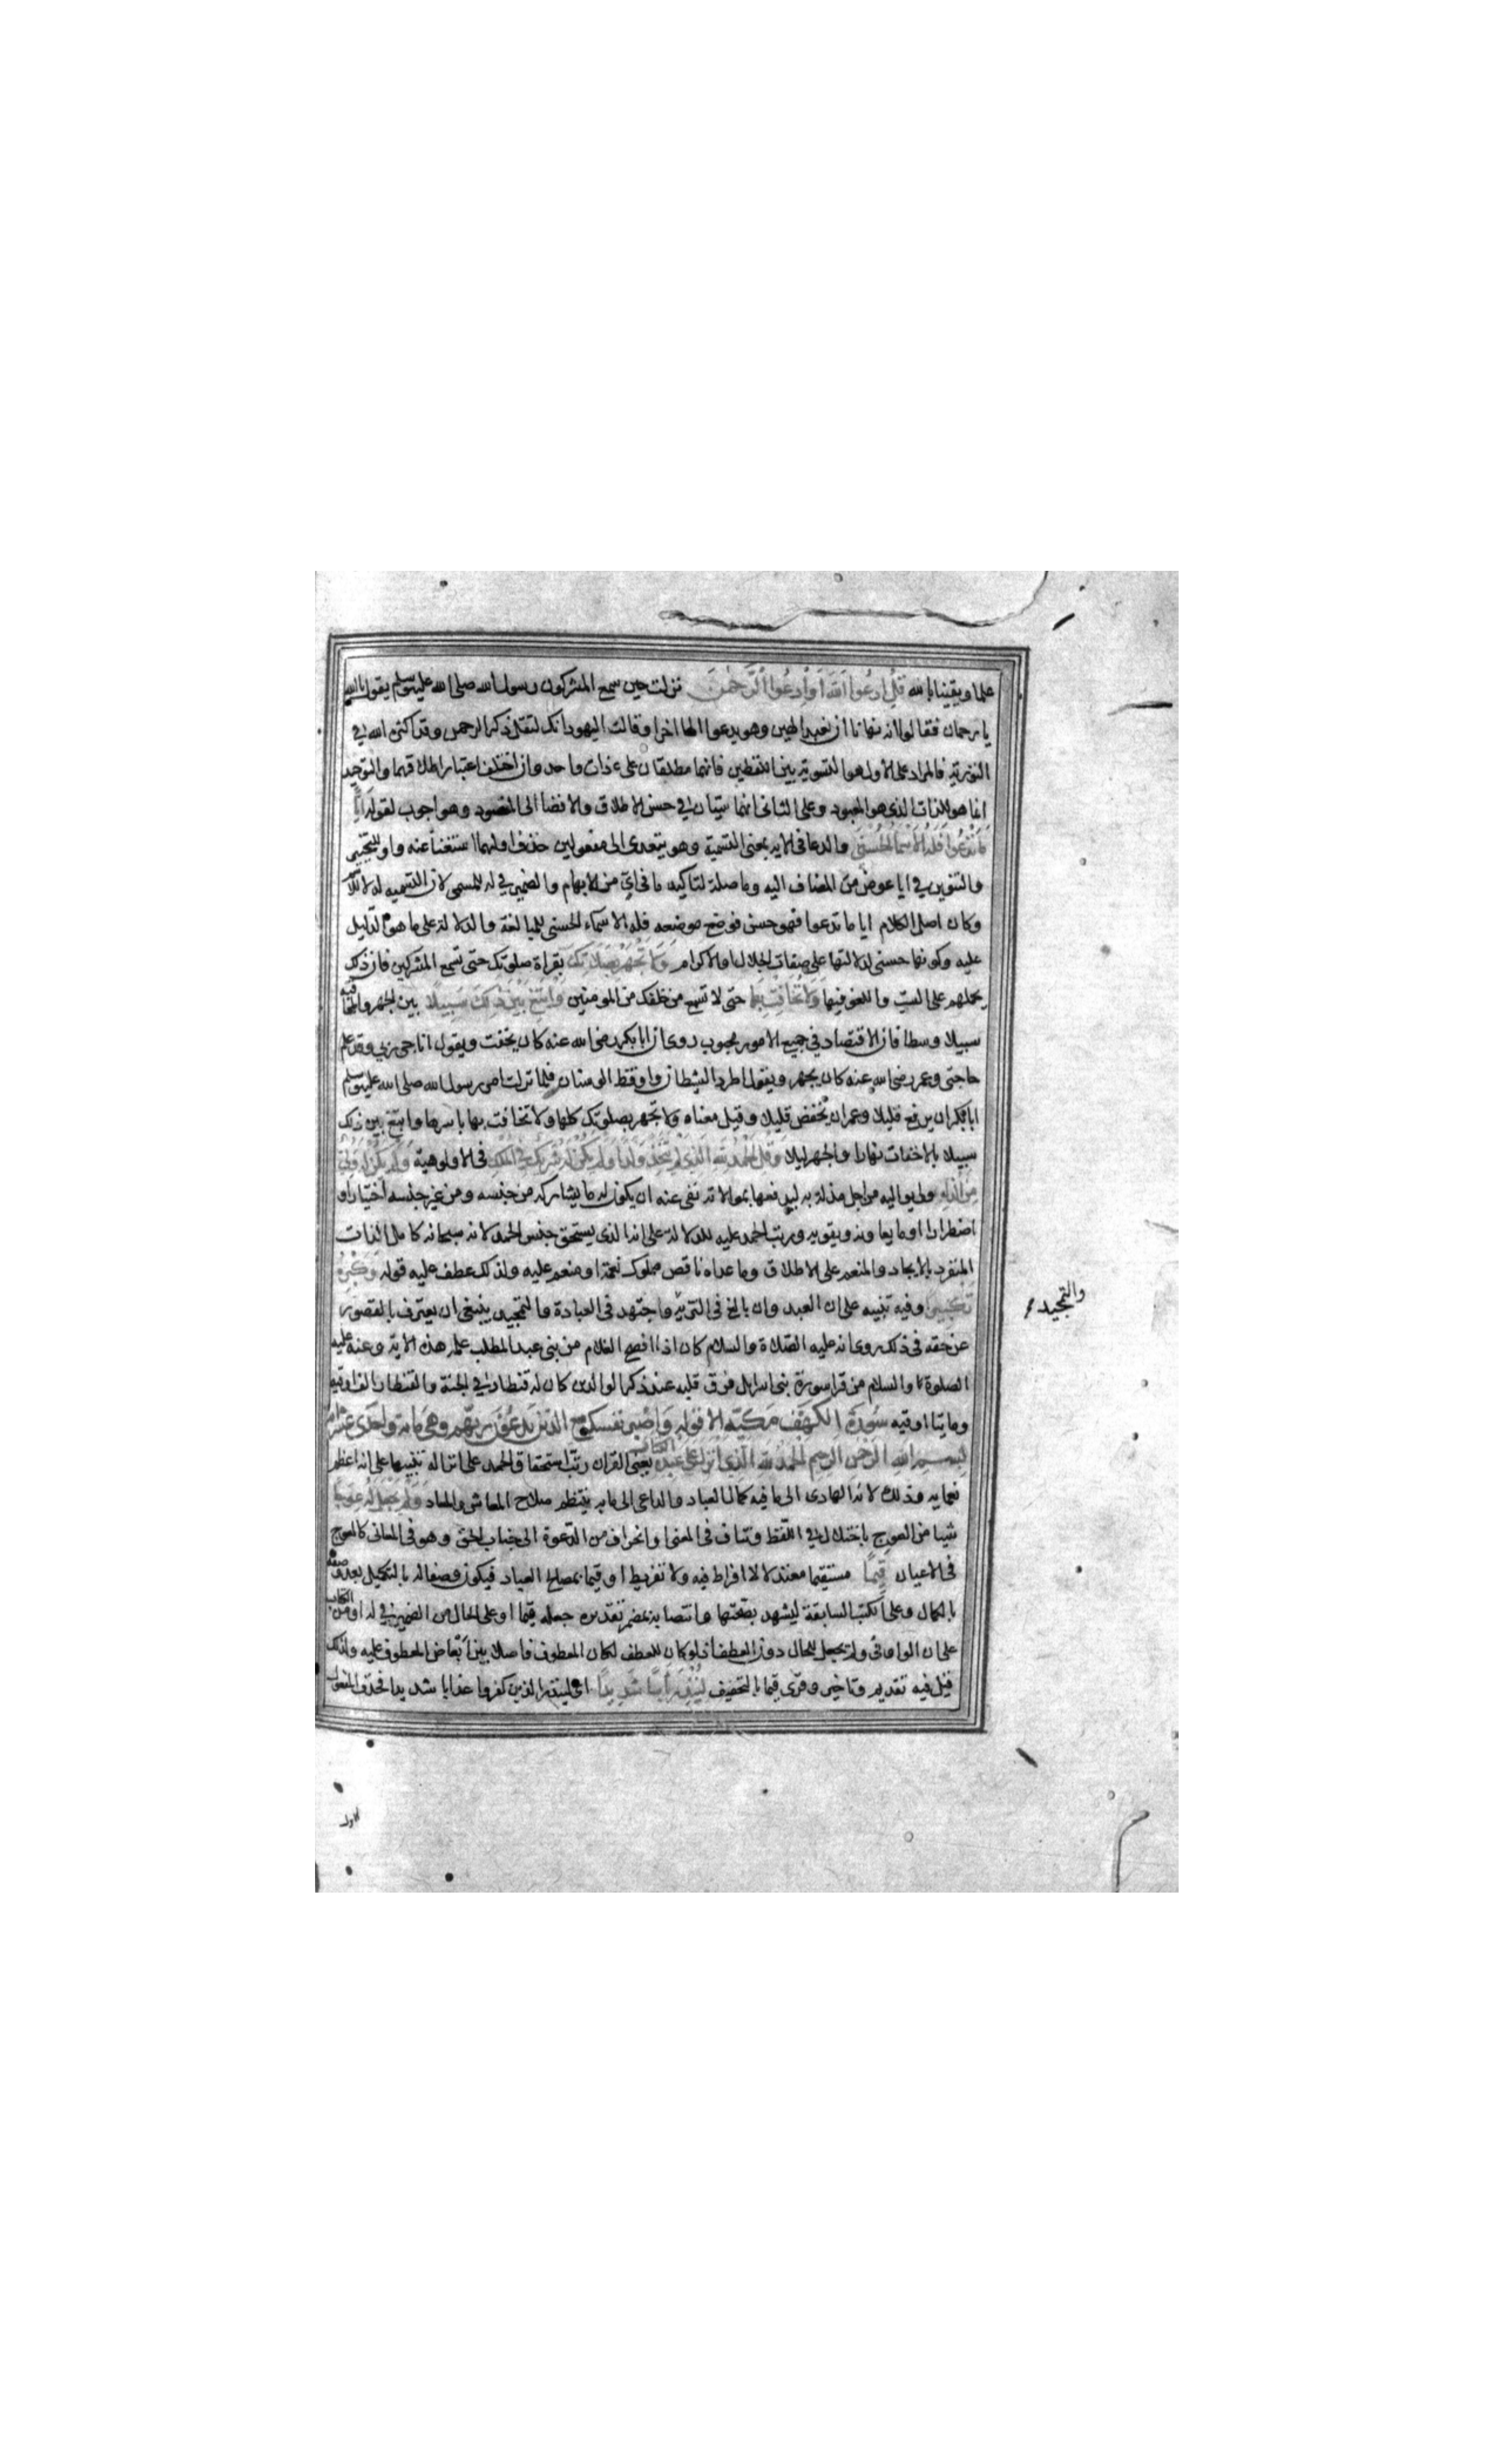 علما ويقينا بالله قُلِ ادعُوا اللّهَ أوِ ادعُوا الرَّحْمٰنَ نزلت حين سمع المشركون رسول الله صلى الله عليه وسلم يقول يا الله
يا رحمان فقالوا انه ينهانا ان نعبد الهين وهو يدعوا الها اخرا وقالت اليهود انك لتقل ذكر الرحمن وقد اكثره الله في
التورية فالمراد على الاول هو التسوية بين اللفظين فانهما مطلقان على ذات واحد وان اختلف اعتبار اطلاقهما والتوحيد
انما هو للذات الذي هو المعبود وعلى الثاني انهما سيّان في حسن الاطلاق والافضا الى المقصود وهو اجوب لقوله ايًّا
مَا تَدْعُوا فَلَهُ الاَسْمَاءُ الحُسْنَى والدعا في الاية بمعنى التسمية وهو يتعدى الى مفعولين حذف اولهما استغناً عنه واو للتخيير
والتنوين في ايا عوض من المضاف اليه وما صلة لتاكيد ما في ايّ من الابهام والضمير في له للمسمى لان التسميه له لا للاسم
وكان اصل الكلام ايا ما تدعوا فهو حسن فوضع موضعه فله الاسماء الحسنى للمبالغة والدلالة على ما هو الدليل
عليه وكونها حسنى لدلالتها على صفات الجلال والاكرام وَلَا تَجْهَرْ بِصَلَاتِكَ بقراة صلوتك حتى تسمع المشركين فان ذلك
يحملهم على السبّ واللغو فيها وَلَا تُخَافِتْ بِهَا حتى لا تسمع من خلفك من المومنين وَابْتَغِ بَيْنَ ذٰلِكَ سَبِيلًا بين الجهر والمخافتة
سبيلا وسطا فان الاقتصاد في جميع الامور محبوب روي ان ابا بكر رضي الله عنه كان يخفت ويقول اناجي ربي وقد علم
حاجتي وعمر رضي الله عنه كان يجهر ويقول اطرد الشيطان واوقظ الوسنان فلما نزلت امر رسول الله صلى الله عليه وسلم
ابا بكر ان يرفع قليلا وعمر ان يخفض قليلا وقيل معناه ولا تجهر بصلوتك كلها ولا تخافت بها باسرها وابتغ بين ذلك
سبيلا بالاخفات نهارا والجهر ليلا وَقُلِ الْحَمْدُ لِلّهِ الَّذِي لَمْ يَتَّخِذْ وَلَدًا وَلَمْ يَكُنْ لَهُ شَرِيكٌ فِي الْمُلْكِ في الالوهية وَلَمْ يَكُنْ لَهُ وَلِيٌّ
مِنَ الذُّلِّ ولي يواليه من اجل مذلة به ليدفعها بموالاته نفى عنه ان يكون له ما يشاركه من جنسه ومن غير جنسه اختيارا و
اضطرارا او ما يعاونه ويقويه ورتب الحمد عليه للدلالة على انه الذي يستحق جنس الحمد لانه سبحانه كامل الذات
المنفرد بالايجاد والمنعم على الاطلاق وما عداه ناقص مملوك نعمة او منعم عليه ولذلك عطف عليه قوله وَكَبِّرْهُ
تَكْبِيرًا وفيه تنبيه على ان العبد وان بالغ في التنزيه واجتهد في العبادة والتحميد ينبغي ان يعترف بالقصور
والتمجيد
عن حقه في ذلك روي انه عليه الصلاة والسلام كان اذا افصح الغلام من بني عبد المطلب علمه هذه الاية وعنه عليه
الصلوة والسلام من قرا سورة بني اسرايل فرق قلبه عند ذكر الوالدين كان له قنطار في الجنة والقنطار الف اوقية
ومايتا اوقيه سُورَةُ الكَهْف مَكيّة الا قوله وَاصْبِر نَفْسكَ مع الّذين يَدعُونَ ربّهم وهي مايه واحدى عشرة
بِسْمِ اللهِ الرَّحْمٰنِ الرَّحِيمِ الْحَمْدُ لِلّهِ الَّذِي اَنْزَلَ عَلَى عَبْدِهِ الكتاب يعني القران رتّب استحقاق الحمد على انزاله تنبيها على انه اعظم
نعمايه وذلك لانه الهادي الى ما فيه كمال العباد والداعي الى ما به ينتظم صلاح المعاش والمعاد وَلَمْ يَجْعَلْ لَهُ عِوَجًا
شيئا من العوج باختلال في اللفظ وتناف في المعنى وانحراف من الدعوة الى جناب الحق وهو في المعاني كالعوج
في الاعيان قَيِّمًا مستقيما معتدلا لا افراط فيه ولا تفريط او قيما بمصالح العباد فيكون وصفا له بالتكميل بعد وصفه
بالكمال وعلى الكتب السابقة ليشهد بصحتها وانتصابه بمضمر تقديره جعله قيما او على الحال من الضمير في له او من الكتاب
على ان الواو في ولم يجعل للحال دون العطف اذ لو كان للعطف لكان المعطوف فاصلا بين ابعاض المعطوف عليه ولذلك
قيل فيه تقديم وتاخير وقرى قيما بالتخفيف لِيُنْذِرَ بَأْسًا شَدِيدًا اي لينذر الذين كفروا عذابا شديدا فحذف المفعول
الاول